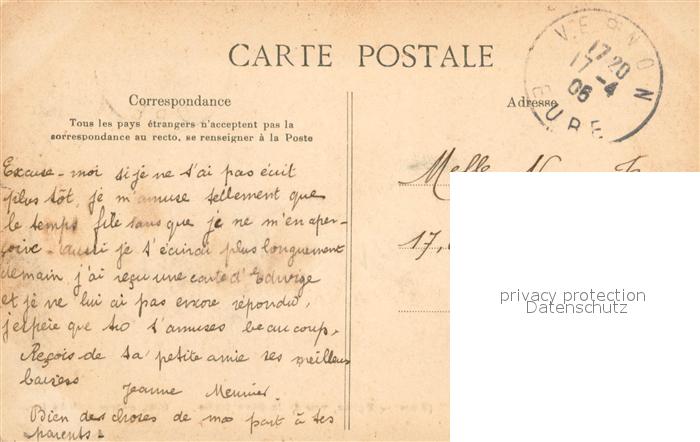 CARTE POSTALE
Correspondance
Tous les pays étrangers n'acceptent pas la
correspondance au recto, se renseigner à la Poste
Adresse
VERNON
17 20
17 -4
06
EURE
Excuse-moi si je ne t'ai pas écrit
plus tôt, je m'amuse tellement que
le temps file sans que je ne m'en aper-
çoive. aussi je t'écrirai plus longuement
demain, j'ai reçu une carte d'Edwige
et je ne lui ai pas encore répondu,
j'espère que tu t'amuses beaucoup.
Reçois de ta petite amie ses meilleurs
baisers
Jeanne Meunier.
Bien des choses de ma part à tes
parents.
Melle
17,
privacy protection
Datenschutz